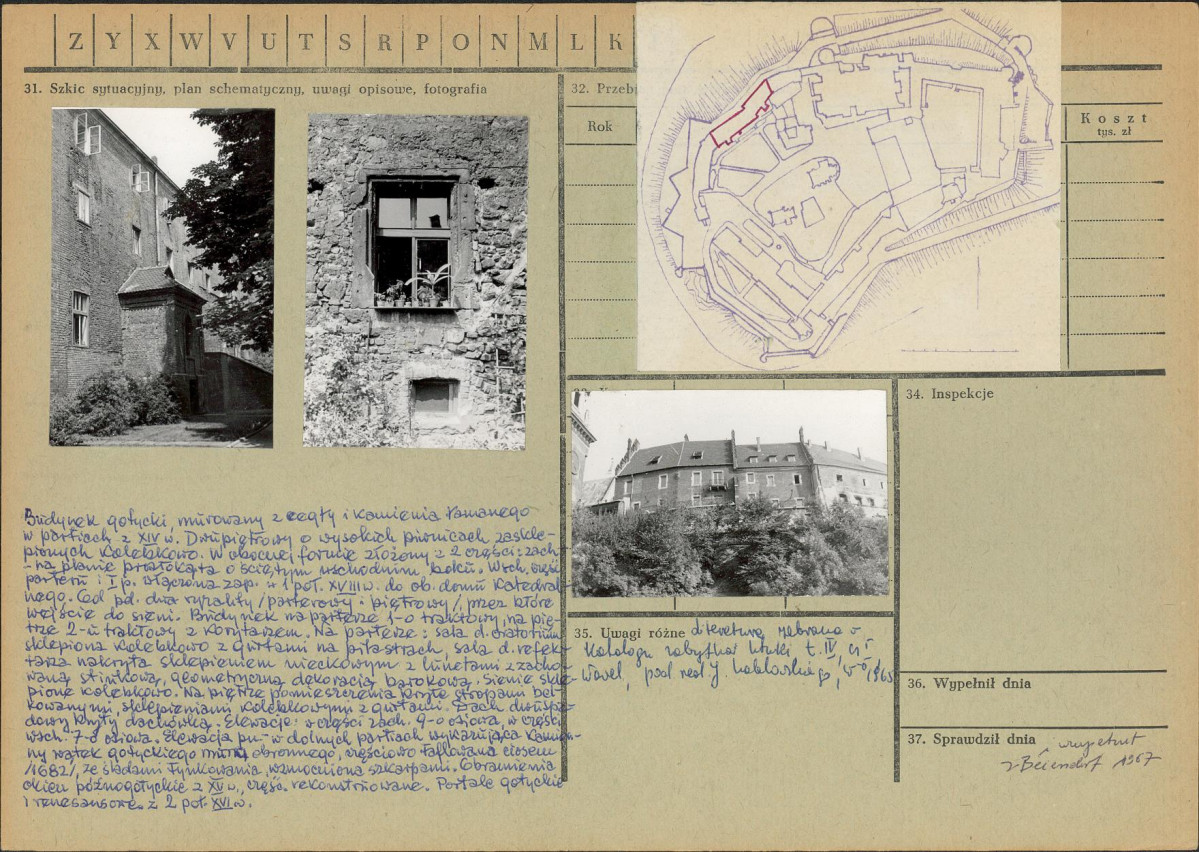 Z Y X W V U T S R P O N M L K
31. Szkic sytuacyjny, plan schematyczny, uwagi opisowe, fotografia
Budynek gotycki, murowany z cegły i kamienia łamanego
w partiach z XIV w. Dwupiętrowy o wysokich piwnicach zaskle-
pionych kolebkowo. W obecnej formie złożony z 2 części: zach.
-na planie prostokąta o ściętym wschodnim boku. Wsch. część
parteru i I p. włączona zap. w 1 poł. XVIII w. do ob. domu Katedral
nego. Od pd. dwa ryzality /parterowy i piętrowy/, przez które
wejście do sieni. Budynek na parterze 1-o traktowy, na pię-
trze 2-u traktowy z korytarzem. Na parterze: sala d. oratorium
sklepiona kolebkowo z gurtami na pilastrach, sala d. refek-
tarza nakryta sklepieniem nieckowym z lunetami z zacho
waną stiukową, geometryczną dekoracją barokową. Sienie skle
pione kolebkowo. Na piętrze pomieszczenia kryte stropami bel-
kowanymi, sklepieniami kolebkowymi z gurtami. Dach dwuspa-
dowy kryty dachówką. Elewacje: w części zach. 9-o osiowa, w części
wsch. 7-o osiowa. Elewacja pn. w dolnych partiach wykazująca kamien-
ny wątek gotyckiego muru obronnego, częściowo łatana ciosem
/1682/, ze śladami tynkowania, wzmocniona szkarpami. Obramienia
okien późnogotyckie z XV w., częśc. rekonstruowane. Portale gotyckie
i renesansowe z 2 poł. XVI w.
32. Przeb
Rok
Koszt
tys. zł
34. Inspekcje
35. Uwagi różne literatura zebrana w
Katalogu zabytków sztuki t. IV, cz I
Wawel, pod red. J. 1965
36. Wypełnił dnia
37. Sprawdził dnia
wypełnił
1967